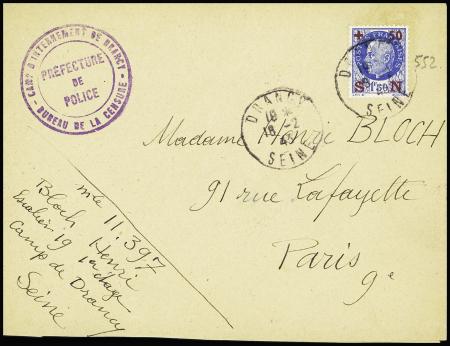 CAMP D'INTERNEMENT DE DRANCY
PRÉFECTURE
DE
POLICE
BUREAU DE LA CENSURE
POSTES FRANÇAISES
+ 50
1f50
S N
552.
DRANCY
18 *
18 -2
43
SEINE
D
SEINE
Madame Henri BLOCH
91 rue Lafayette
Paris
9e
mle 11.397
Bloch Henri
Escalier 19 1er étage
Camp de Drancy
Seine